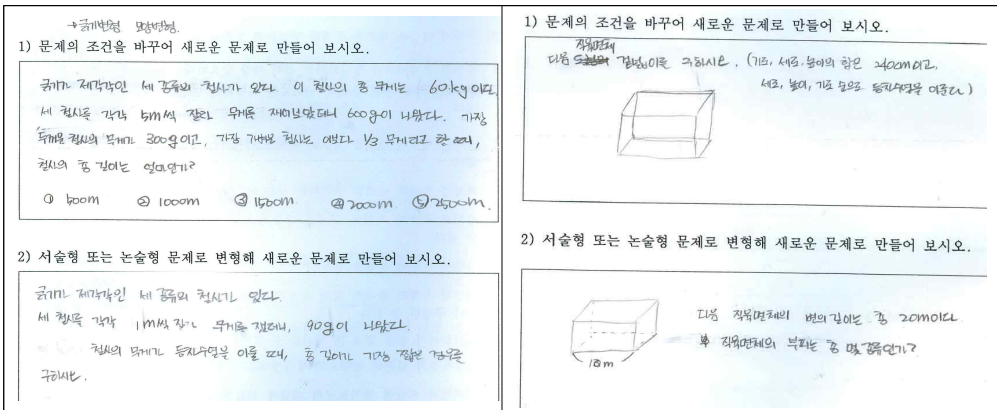 →굵기변형 모양변형.
1) 문제의 조건을 바꾸어 새로운 문제로 만들어 보시오.
굵기가 제각각인 세 종류의 철사가 있다. 이 철사의 총 무게는 60kg이다.
세 철사를 각각 5m씩 잘라 무게를 재어보았더니 600g이 나왔다. 가장
두꺼운 철사의 무게가 300g이고, 가장 가벼운 철사는 이보다 1/3 무게라고 할 때,
철사의 총 길이는 얼마인가?
① 500m ② 1000m ③ 1500m ④ 2000m ⑤ 2500m.
2) 서술형 또는 논술형 문제로 변형해 새로운 문제로 만들어 보시오.
굵기가 제각각인 세 종류의 철사가 있다.
세 철사를 각각 1m씩 잘라 무게를 쟀더니, 90g이 나왔다.
철사의 무게가 등차수열을 이룰 때, 총 길이가 가장 짧은 경우를
구하시오.
1) 문제의 조건을 바꾸어 새로운 문제로 만들어 보시오.
직육면체
다음 겉넓이를 구하시오. (가로, 세로, 높이의 합은 240cm이고,
세로, 높이, 가로 순으로 등차수열을 이룬다.)
2) 서술형 또는 논술형 문제로 변형해 새로운 문제로 만들어 보시오.
다음 직육면체의 변의 길이는 총 20m이다.
직육면체의 부피는 총 몇 종류인가?
10m